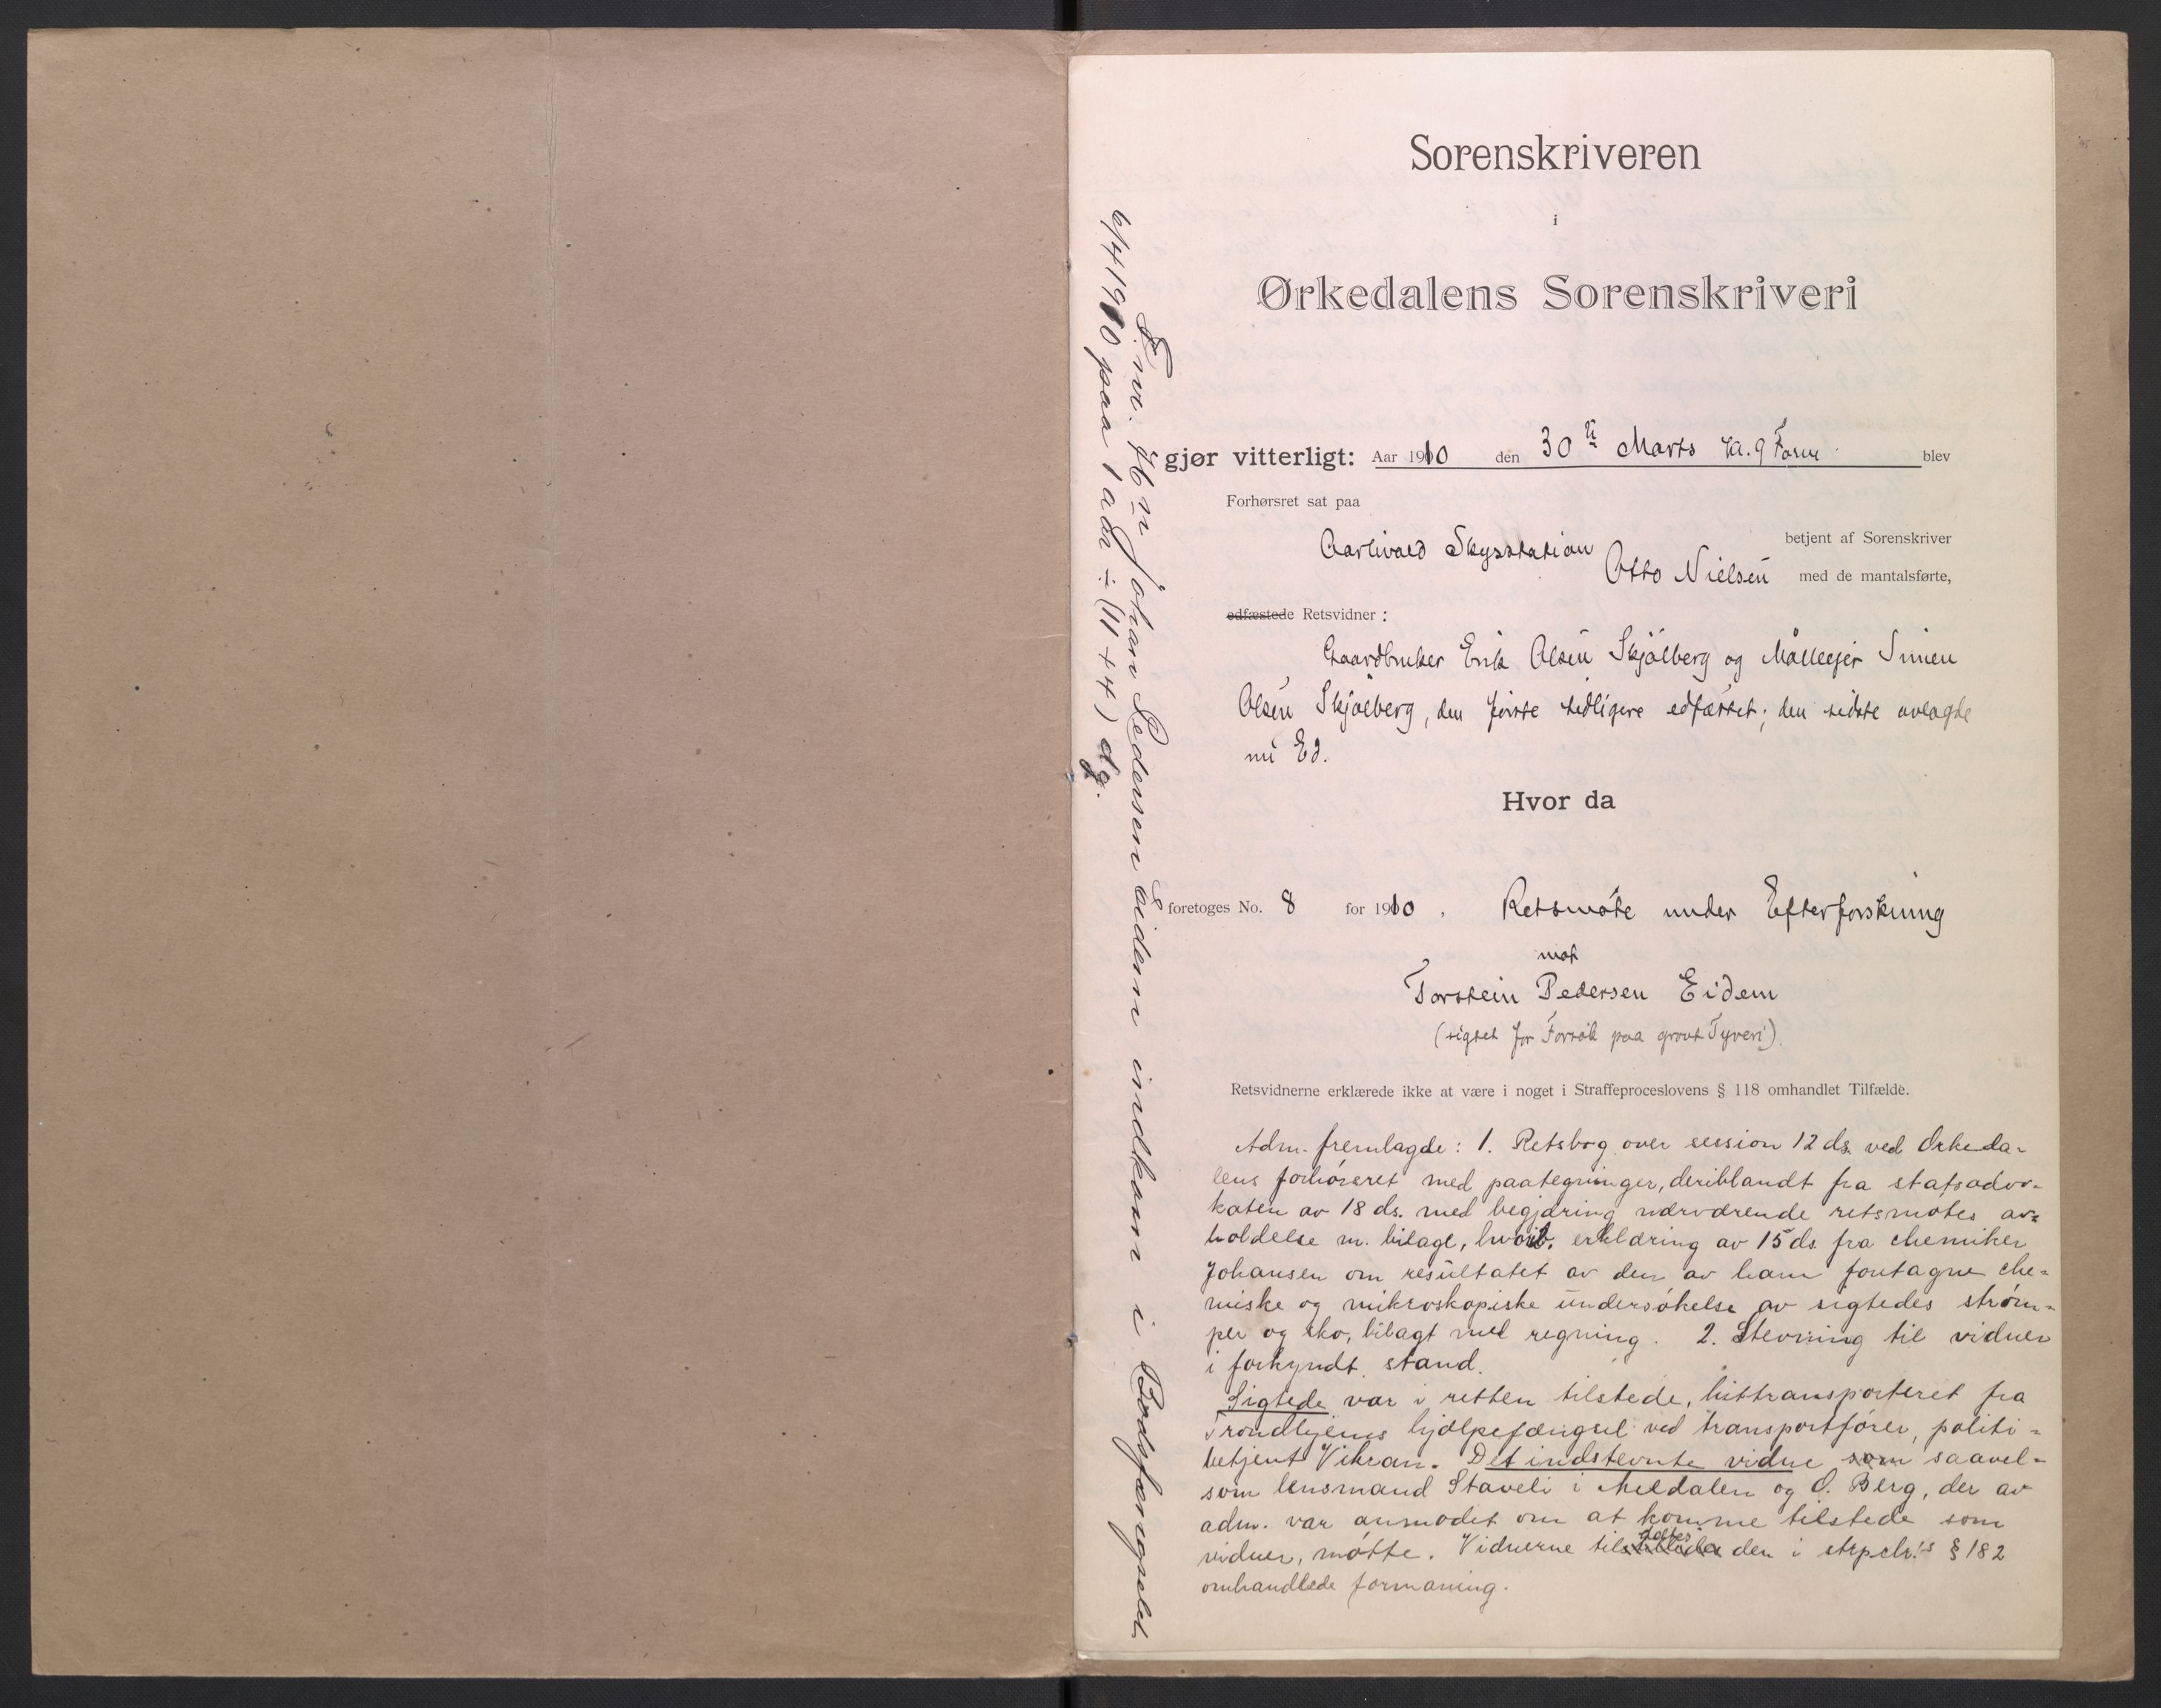 Sorenskriveren
i
Ørkedalens Sorenskriveri
gjør vitterligt: Aar 1910 den 30te Marts kl. 9 Form blev
Forhørsret sat paa
Aarlivold Skysstation betjent af Sorenskriver
Otto Nielsen med de mantalsførte,
edfæstede Retsvidner :
Gaardbruker Erik Olsen Skjölberg og Mölleejer Simen
Olsen Skjölberg, den förste tidligere edfæstet; den sidste avlagde
nu Ed.
Hvor da
foretoges No. 8 for 1910 . Retsmöte under Efterforskning
mot
Torstein Pedersen Eidem
(sigtet for Forsök paa grovt Tyveri).
Retsvidnerne erklærede ikke at være i noget i Straffeproceslovens § 118 omhandlet Tilfælde.
Adm. fremlagde: 1. Retsbog over session 12 ds. ved Orkeda-
lens forhörsret med paategninger, deriblandt fra statsadvo-
katen av 18 ds. med begjæring nærværende retsmötes av-
holdelse m. bilage, hvorib. erklæring av 15 ds. fra chemiker
Johansen om resultatet av den av ham foretagne che-
miske og mikroskopiske undersökelse av sigtedes ström-
per og sko, bilagt med regning. 2. Stevning til vidner
i forkyndt stand.
Sigtede var i retten tilstede, hittransporteret fra
Trondhjems hjælpefængsel ved transportförer, politi-
betjent Vikran. Det indstevnte vidne som saavel-
som lensmand Staveli i Meldalen og O. Berg, der av
adm. var anmodet om at komme tilstede som
vidner, mötte. Vidnerne tilholdtes den i strpclv.'s § 182
omhandlede formaning.
F. nr. 76 n Johan Pedersen Eidem indkom i Bodsfængselet
6/4 1910 paa 1 aar ÷ (11 + 4) dg.